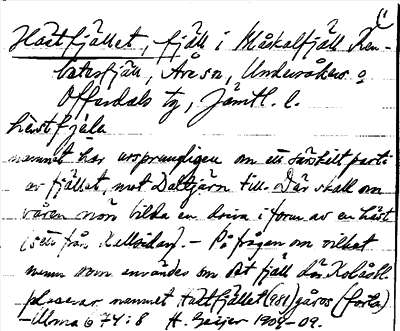 Hästfjället, fjäll i Måskalfjäll
fjäll, Åre sn, Undersåkers o
Offerdals tg, Jämtl. l.
hèstfjęle
namnet har ursprungligen om ett särskilt parti
av fjället, mot Daltjärn till. Där skall om
våren snön bilda en driva i form av en häst
(sett från Kallsidan). – På frågan om vilket
namn som användes om det fjäll där
placerar namnet Hästfjället (981)
– Ulma 674:8 H. Geijer 1908-09.